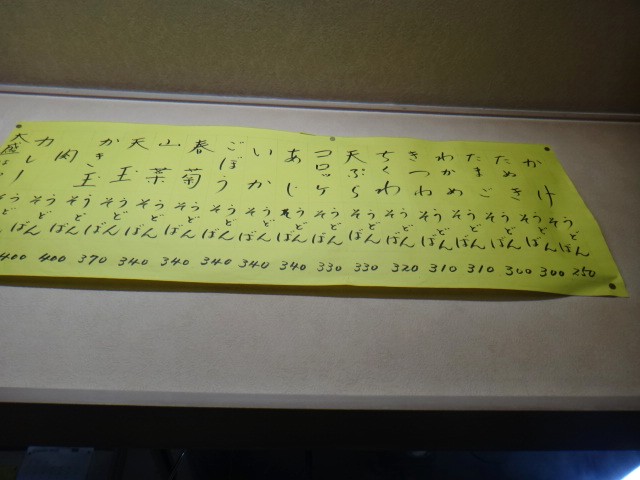 かけそばうどん 250
たぬきそばうどん 300
たまごそばうどん 300
わかめそばうどん 310
きつねそばうどん 310
ちくわそばうどん 320
天ぷらそばうどん 330
コロッケそばうどん 330
あじそばうどん 340
いかそばうどん 340
ごぼうそばうどん 340
春菊そばうどん 340
山菜そばうどん 340
天玉そばうどん 370
かき玉そばうどん 400
肉そばうどん 400
大盛